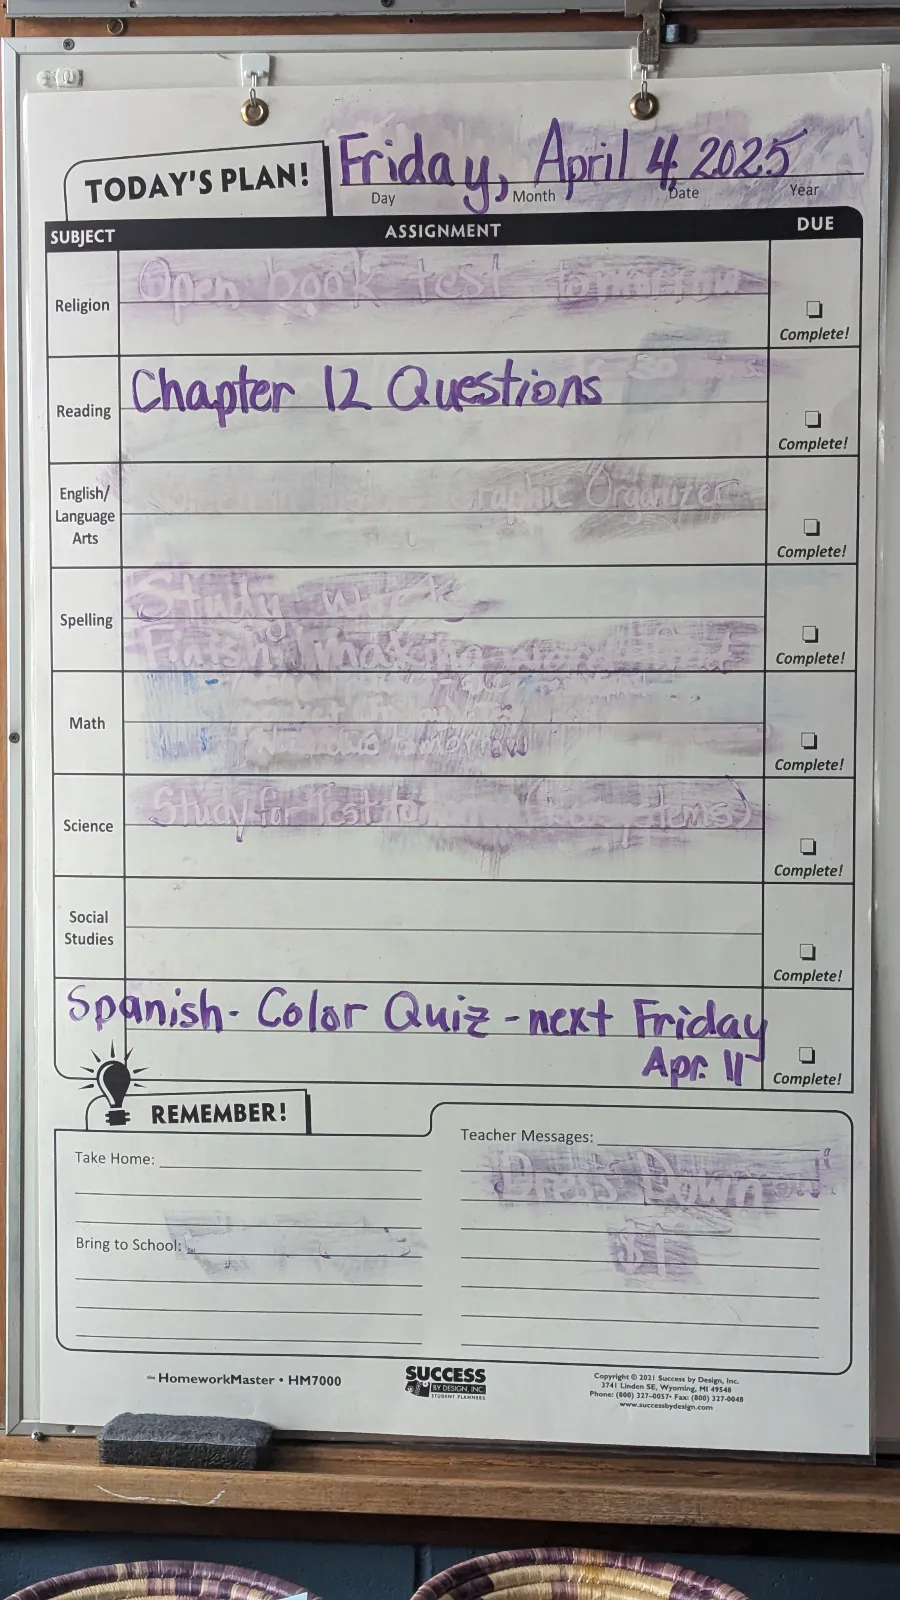 Friday, April 4, 2025
TODAY'S PLAN!
Day Month Date Year
SUBJECT ASSIGNMENT DUE
Open book test tomorrow
Religion
Complete!
Chapter 12 Questions
Reading
Complete!
Graphic Organizer
English/
Language
Arts
Complete!
Study
Spelling
Finish making
Complete!
Math
tomorrow
Complete!
Study for Test
Science
Complete!
Social
Studies
Complete!
Spanish- Color Quiz - next Friday
Apr. 11
Complete!
REMEMBER!
Take Home:
Bring to School:
Teacher Messages:
Dress Down
$1
the HomeworkMaster • HM7000
SUCCESS
BY DESIGN, INC.
STUDENT PLANNERS
Copyright © 2021 Success by Design, Inc.
3741 Linden SE, Wyoming, MI 49548
Phone: (800) 327-0057• Fax: (800) 327-0048
www.successbydesign.com